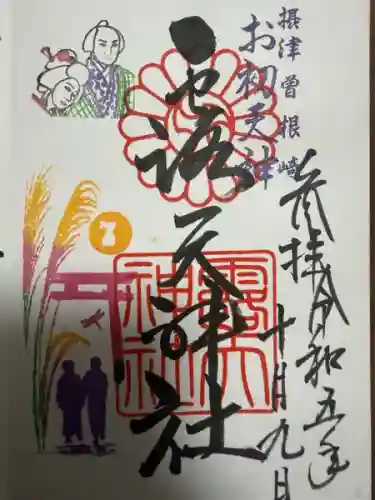 摂津曽根崎
お初天神
奉拝令和五年
十月九日
露天神社
露天神社